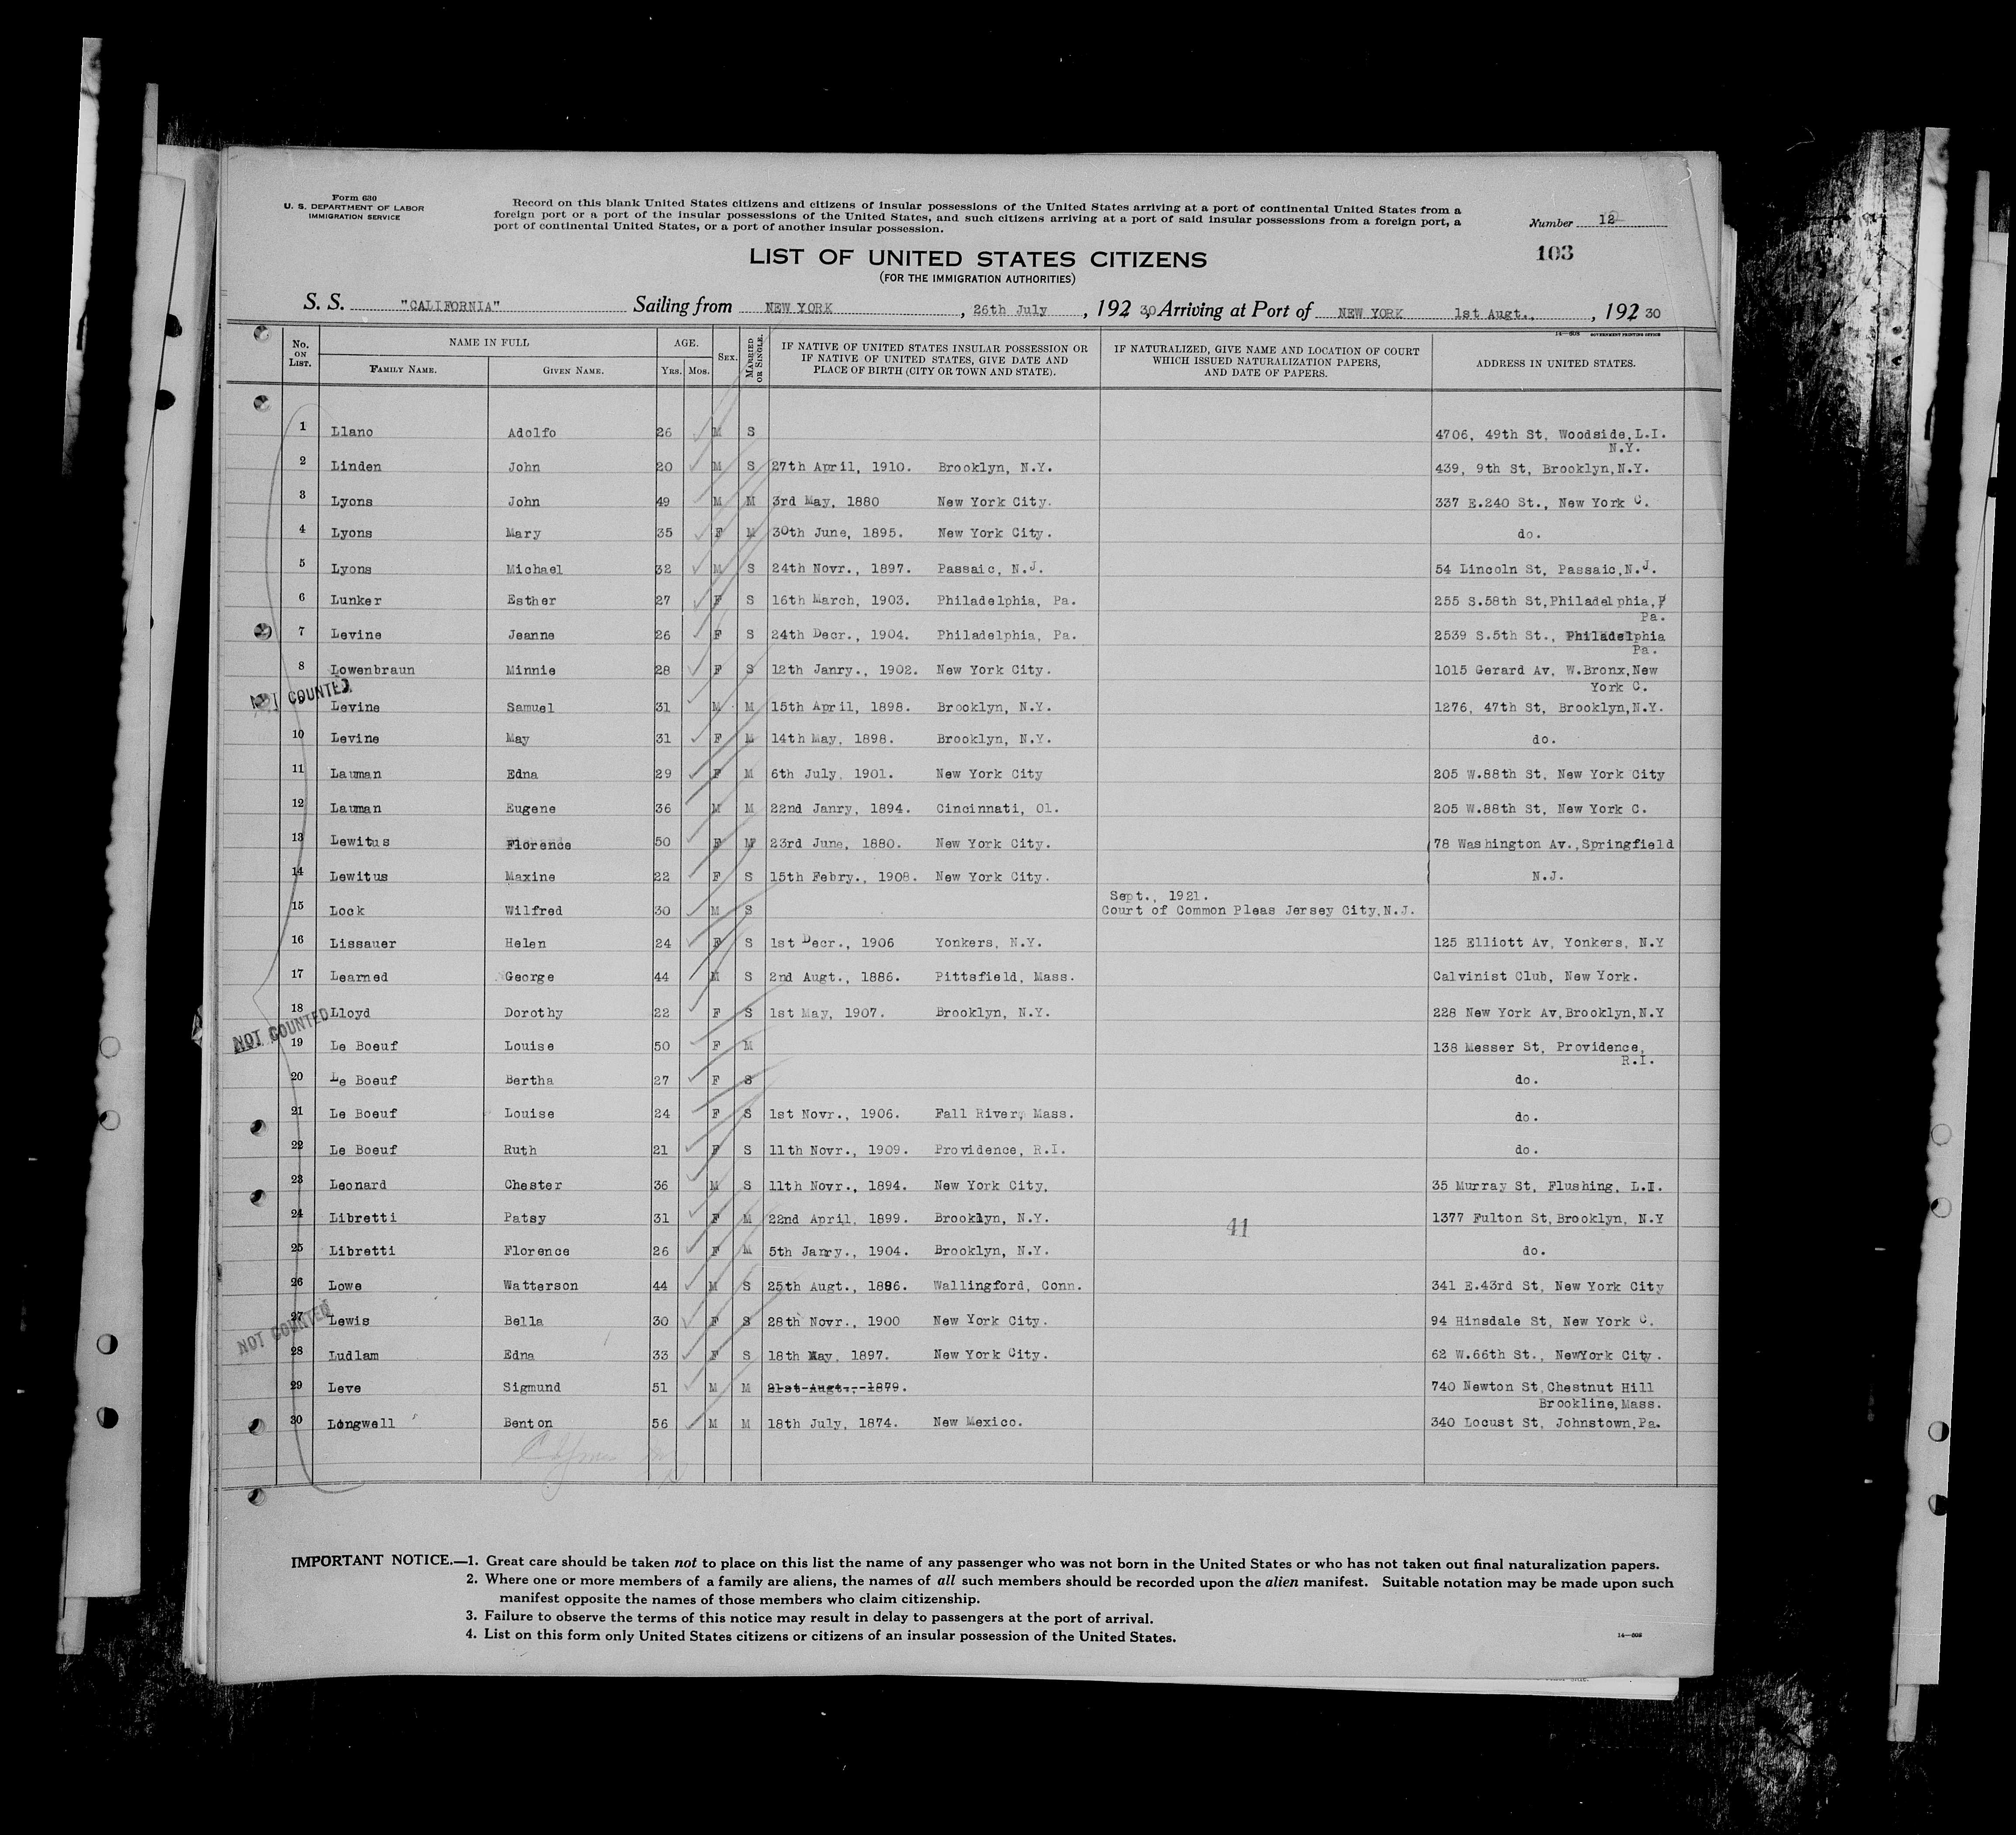 Form 630
U. S. DEPARTMENT OF LABOR
IMMIGRATION SERVICE
Record on this blank United States citizens and citizens of insular possessions of the United States arriving at a port of continental United States from a
foreign port or a port of the insular possessions of the United States, and such citizens arriving at a port of said insular possessions from a foreign port, a
port of continental United States, or a port of another insular possession.
Number 12
103
LIST OF UNITED STATES CITIZENS
(FOR THE IMMIGRATION AUTHORITIES)
S. S. "CALIFORNIA" Sailing from NEW YORK, 26th July, 192 30, Arriving at Port of NEW YORK 1st Augt., 192 30
14—608 GOVERNMENT PRINTING OFFICE
No. ON LIST. NAME IN FULL AGE. SEX. MARRIED OR SINGLE. IF NATIVE OF UNITED STATES INSULAR POSSESSION OR IF NATIVE OF UNITED STATES, GIVE DATE AND PLACE OF BIRTH (CITY OR TOWN AND STATE). IF NATURALIZED, GIVE NAME AND LOCATION OF COURT WHICH ISSUED NATURALIZATION PAPERS, AND DATE OF PAPERS. ADDRESS IN UNITED STATES.
FAMILY NAME. GIVEN NAME. YRS. MOS.
1 Llano Adolfo 26 M S 4706, 49th St, Woodside,L.I.
N.Y.
2 Linden John 20 M S 27th April, 1910. Brooklyn, N.Y. 439, 9th St, Brooklyn,N.Y.
3 Lyons John 49 M M 3rd May, 1880 New York City. 337 E.240 St., New York C.
4 Lyons Mary 35 F M 30th June, 1895. New York City. do.
5 Lyons Michael 32 M S 24th Novr., 1897. Passaic, N.J. 54 Lincoln St, Passaic,N.J.
6 Lunker Esther 27 F S 16th March, 1903. Philadelphia, Pa. 255 S.58th St,Philadelphia,P
Pa.
7 Levine Jeanne 26 F S 24th Decr., 1904. Philadelphia, Pa. 2539 S.5th St., Philadelphia
Pa.
8 Lowenbraun Minnie 28 F S 12th Janry., 1902. New York City. 1015 Gerard Av, W.Bronx,New
NOT COUNTED York C.
Levine Samuel 31 M M 15th April, 1898. Brooklyn, N.Y. 1276, 47th St, Brooklyn,N.Y.
10 Levine May 31 F M 14th May, 1898. Brooklyn, N.Y. do.
11 Lauman Edna 29 F M 6th July, 1901. New York City 205 W.88th St, New York City
12 Lauman Eugene 36 M M 22nd Janry, 1894. Cincinnati, Ol. 205 W.88th St, New York C.
13 Lewitus Florence 50 F M 23rd June, 1880. New York City. 78 Washington Av.,Springfield
14 Lewitus Maxine 22 F S 15th Febry., 1908. New York City. N.J.
Sept., 1921.
15 Lock Wilfred 30 M S Court of Common Pleas Jersey City,N.J.
16 Lissauer Helen 24 F S 1st Decr., 1906 Yonkers, N.Y. 125 Elliott Av, Yonkers, N.Y
17 Learned George 44 M S 2nd Augt., 1886. Pittsfield, Mass. Calvinist Club, New York.
18 Lloyd Dorothy 22 F S 1st May, 1907. Brooklyn, N.Y. 228 New York Av,Brooklyn,N.Y
NOT COUNTED
19 Le Boeuf Louise 50 F M 138 Messer St, Providence,
R.I.
20 Le Boeuf Bertha 27 F S do.
21 Le Boeuf Louise 24 F S 1st Novr., 1906. Fall River, Mass. do.
22 Le Boeuf Ruth 21 F S 11th Novr., 1909. Providence, R.I. do.
23 Leonard Chester 36 M S 11th Novr., 1894. New York City, 35 Murray St, Flushing, L.I.
24 Libretti Patsy 31 F M 22nd April, 1899. Brooklyn, N.Y. 41 1377 Fulton St,Brooklyn, N.Y
25 Libretti Florence 26 F M 5th Janry., 1904. Brooklyn, N.Y. do.
26 Lowe Watterson 44 M S 25th Augt., 1886. Wallingford, Conn. 341 E.43rd St, New York City
27 Lewis Bella 30 F S 28th Novr., 1900 New York City. 94 Hinsdale St, New York C.
NOT COUNTED
28 Ludlam Edna 33 F S 18th May, 1897. New York City. 62 W.66th St., NewYork City.
29 Leve Sigmund 51 M M 21st Augt., 1879. 740 Newton St,Chestnut Hill
Brookline,Mass.
30 Longwell Benton 56 M M 18th July, 1874. New Mexico. 340 Locust St, Johnstown,Pa.
IMPORTANT NOTICE.—1. Great care should be taken not to place on this list the name of any passenger who was not born in the United States or who has not taken out final naturalization papers.
2. Where one or more members of a family are aliens, the names of all such members should be recorded upon the alien manifest. Suitable notation may be made upon such
manifest opposite the names of those members who claim citizenship.
3. Failure to observe the terms of this notice may result in delay to passengers at the port of arrival.
4. List on this form only United States citizens or citizens of an insular possession of the United States.
14—608